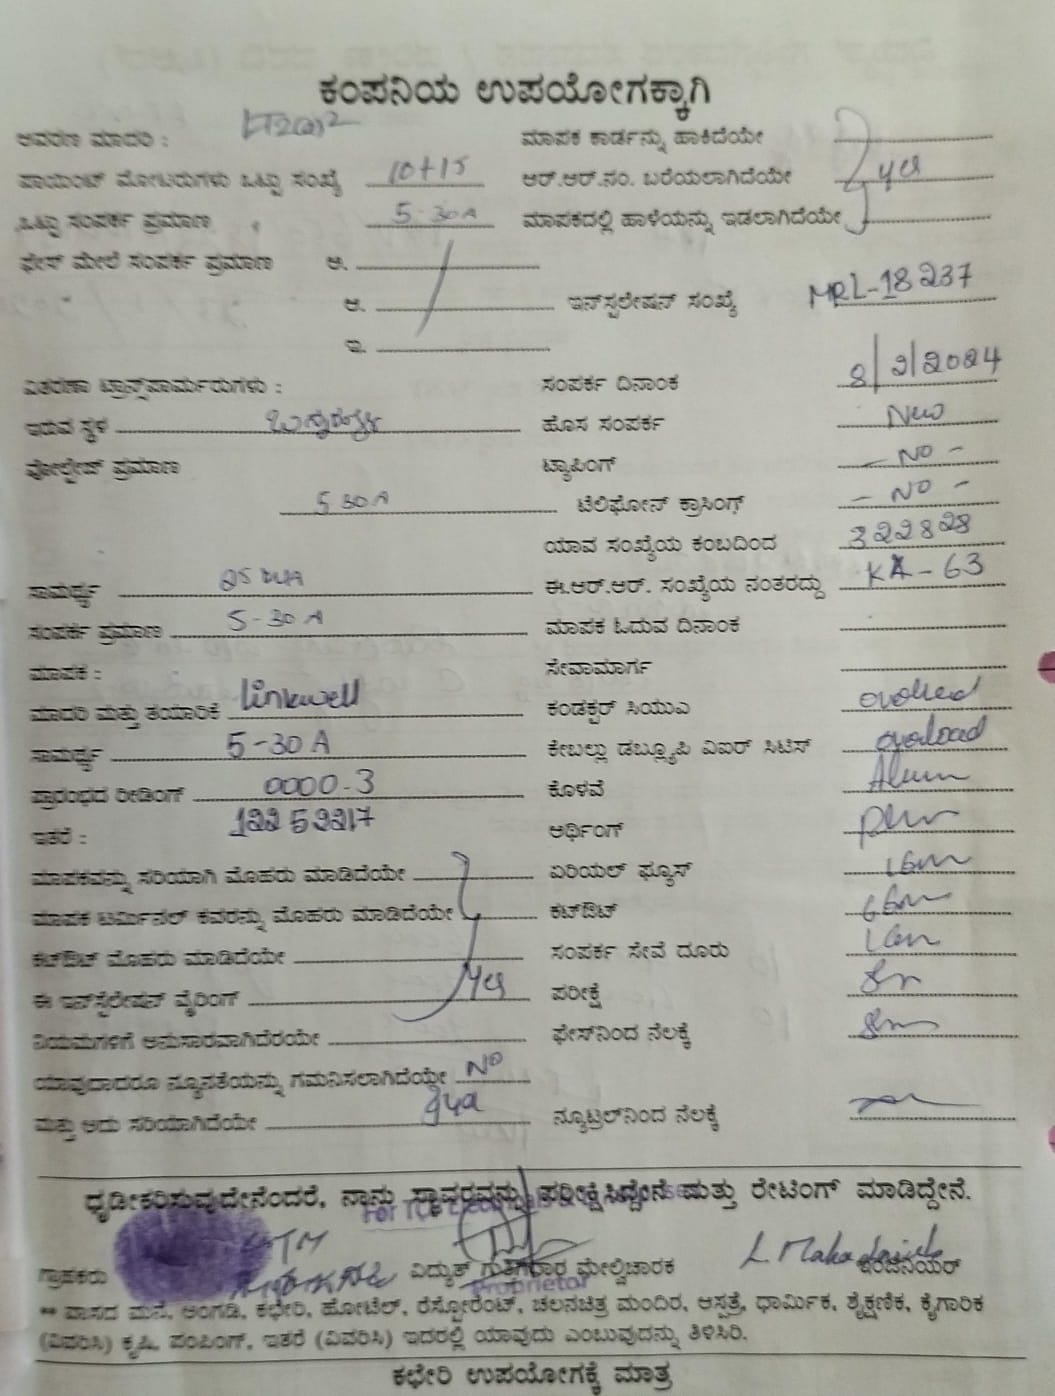 ಕಂಪನಿಯ ಉಪಯೋಗಕ್ಕಾಗಿ
ಆವರಣ ಮಾದರಿ : LT2(a)2 ಮಾಪಕ ಕಾರ್ಡನ್ನು ಹಾಕಿದೆಯೇ
ಪಾಯಿಂಟ್ ಮೋಟರುಗಳು ಒಟ್ಟು ಸಂಖ್ಯೆ 10+15 ಆರ್.ಆರ್.ನಂ. ಬರೆಯಲಾಗಿದೆಯೇ yes
ಒಟ್ಟು ಸಂಪರ್ಕ ಪ್ರಮಾಣ 5-30A ಮಾಪಕದಲ್ಲಿ ಹಾಳೆಯನ್ನು ಇಡಲಾಗಿದೆಯೇ
ಫೇಸ್ ಮೇಲೆ ಸಂಪರ್ಕ ಪ್ರಮಾಣ ಅ.
ಆ. ಇನ್‌ಸ್ಟಲೇಷನ್ ಸಂಖ್ಯೆ MRL-18237
ಇ.
ವಿತರಣಾ ಟ್ರಾನ್ಸ್‌ಫಾರ್ಮರುಗಳು : ಸಂಪರ್ಕ ದಿನಾಂಕ 8/2/2024
ಇರುವ ಸ್ಥಳ ಹೊಸ ಸಂಪರ್ಕ New
ವೋಲ್ಟೇಜ್ ಪ್ರಮಾಣ ಟ್ಯಾಪಿಂಗ್ - NO -
5 30A ಟೆಲಿಫೋನ್ ಕ್ರಾಸಿಂಗ್ - NO -
ಯಾವ ಸಂಖ್ಯೆಯ ಕಂಬದಿಂದ 322828
ಸಾಮರ್ಥ್ಯ 25 ಈ.ಆರ್.ಆರ್. ಸಂಖ್ಯೆಯ ನಂತರದ್ದು KA-63
ಸಂಪರ್ಕ ಪ್ರಮಾಣ 5-30A ಮಾಪಕ ಓದುವ ದಿನಾಂಕ
ಮಾಪಕ : ಸೇವಾಮಾರ್ಗ
ಮಾದರಿ ಮತ್ತು ತಯಾರಿಕೆ Linkwell ಕಂಡಕ್ಟರ್ ಸಿಯುಎ
ಸಾಮರ್ಥ್ಯ 5-30A ಕೇಬಲ್ಲು ಡಬ್ಲ್ಯೂಪಿ ವಿಐರ್ ಸಿಟಿಸ್ overload
ಪ್ರಾರಂಭದ ರೀಡಿಂಗ್ 0000.3 ಕೊಳವೆ
ಇತರೆ : 12252217 ಅರ್ಥಿಂಗ್
ಮಾಪಕವನ್ನು ಸರಿಯಾಗಿ ಮೊಹರು ಮಾಡಿದೆಯೇ ಏರಿಯಲ್ ಫ್ಯೂಸ್
ಮಾಪಕ ಟರ್ಮಿನಲ್ ಕವರನ್ನು ಮೊಹರು ಮಾಡಿದೆಯೇ ಕಟ್‌ಔಟ್
ಕಟ್‌ಔಟ್ ಮೊಹರು ಮಾಡಿದೆಯೇ ಸಂಪರ್ಕ ಸೇವೆ ದೂರು
ಈ ಇನ್‌ಸ್ಟಲೇಷನ್ ವೈರಿಂಗ್ Yes ಪರೀಕ್ಷೆ
ನಿಯಮಗಳಿಗೆ ಅನುಸಾರವಾಗಿದೆರಯೇ ಫೇಸ್‌ನಿಂದ ನೆಲಕ್ಕೆ
ಯಾವುದಾದರೂ ನ್ಯೂನತೆಯನ್ನು ಗಮನಿಸಲಾಗಿದೆಯೇ NO
ಮತ್ತು ಅದು ಸರಿಯಾಗಿದೆಯೇ ನ್ಯೂಟ್ರಲ್‌ನಿಂದ ನೆಲಕ್ಕೆ
ಧೃಡೀಕರಿಸುವುದೇನೆಂದರೆ, ನಾನು ಸ್ಥಾವರವನ್ನು ಪರೀಕ್ಷಿಸಿದ್ದೇನೆ ಮತ್ತು ರೇಟಿಂಗ್ ಮಾಡಿದ್ದೇನೆ.
LTM
ಗ್ರಾಹಕರು ವಿದ್ಯುತ್ ಗುತ್ತಿಗೆದಾರ ಮೇಲ್ವಿಚಾರಕ ಇಂಜಿನಿಯರ್
Proprietor
** ವಾಸದ ಮನೆ, ಅಂಗಡಿ, ಕಛೇರಿ, ಹೋಟೆಲ್, ರೆಸ್ಟೋರೆಂಟ್, ಚಲನಚಿತ್ರ ಮಂದಿರ, ಆಸ್ಪತ್ರೆ, ಧಾರ್ಮಿಕ, ಶೈಕ್ಷಣಿಕ, ಕೈಗಾರಿಕ
(ವಿವರಿಸಿ) ಕೃಷಿ, ಪಂಪಿಂಗ್, ಇತರೆ (ವಿವರಿಸಿ) ಇದರಲ್ಲಿ ಯಾವುದು ಎಂಬುವುದನ್ನು ತಿಳಿಸಿರಿ.
ಕಛೇರಿ ಉಪಯೋಗಕ್ಕೆ ಮಾತ್ರ